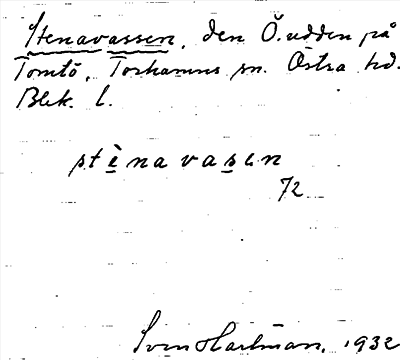 Stenavassen, den Ö. udden på
Tomtö, Torhamns sn. Östra hd.
Blek. l.
stènavasen
72
Sven Hartman, 1932